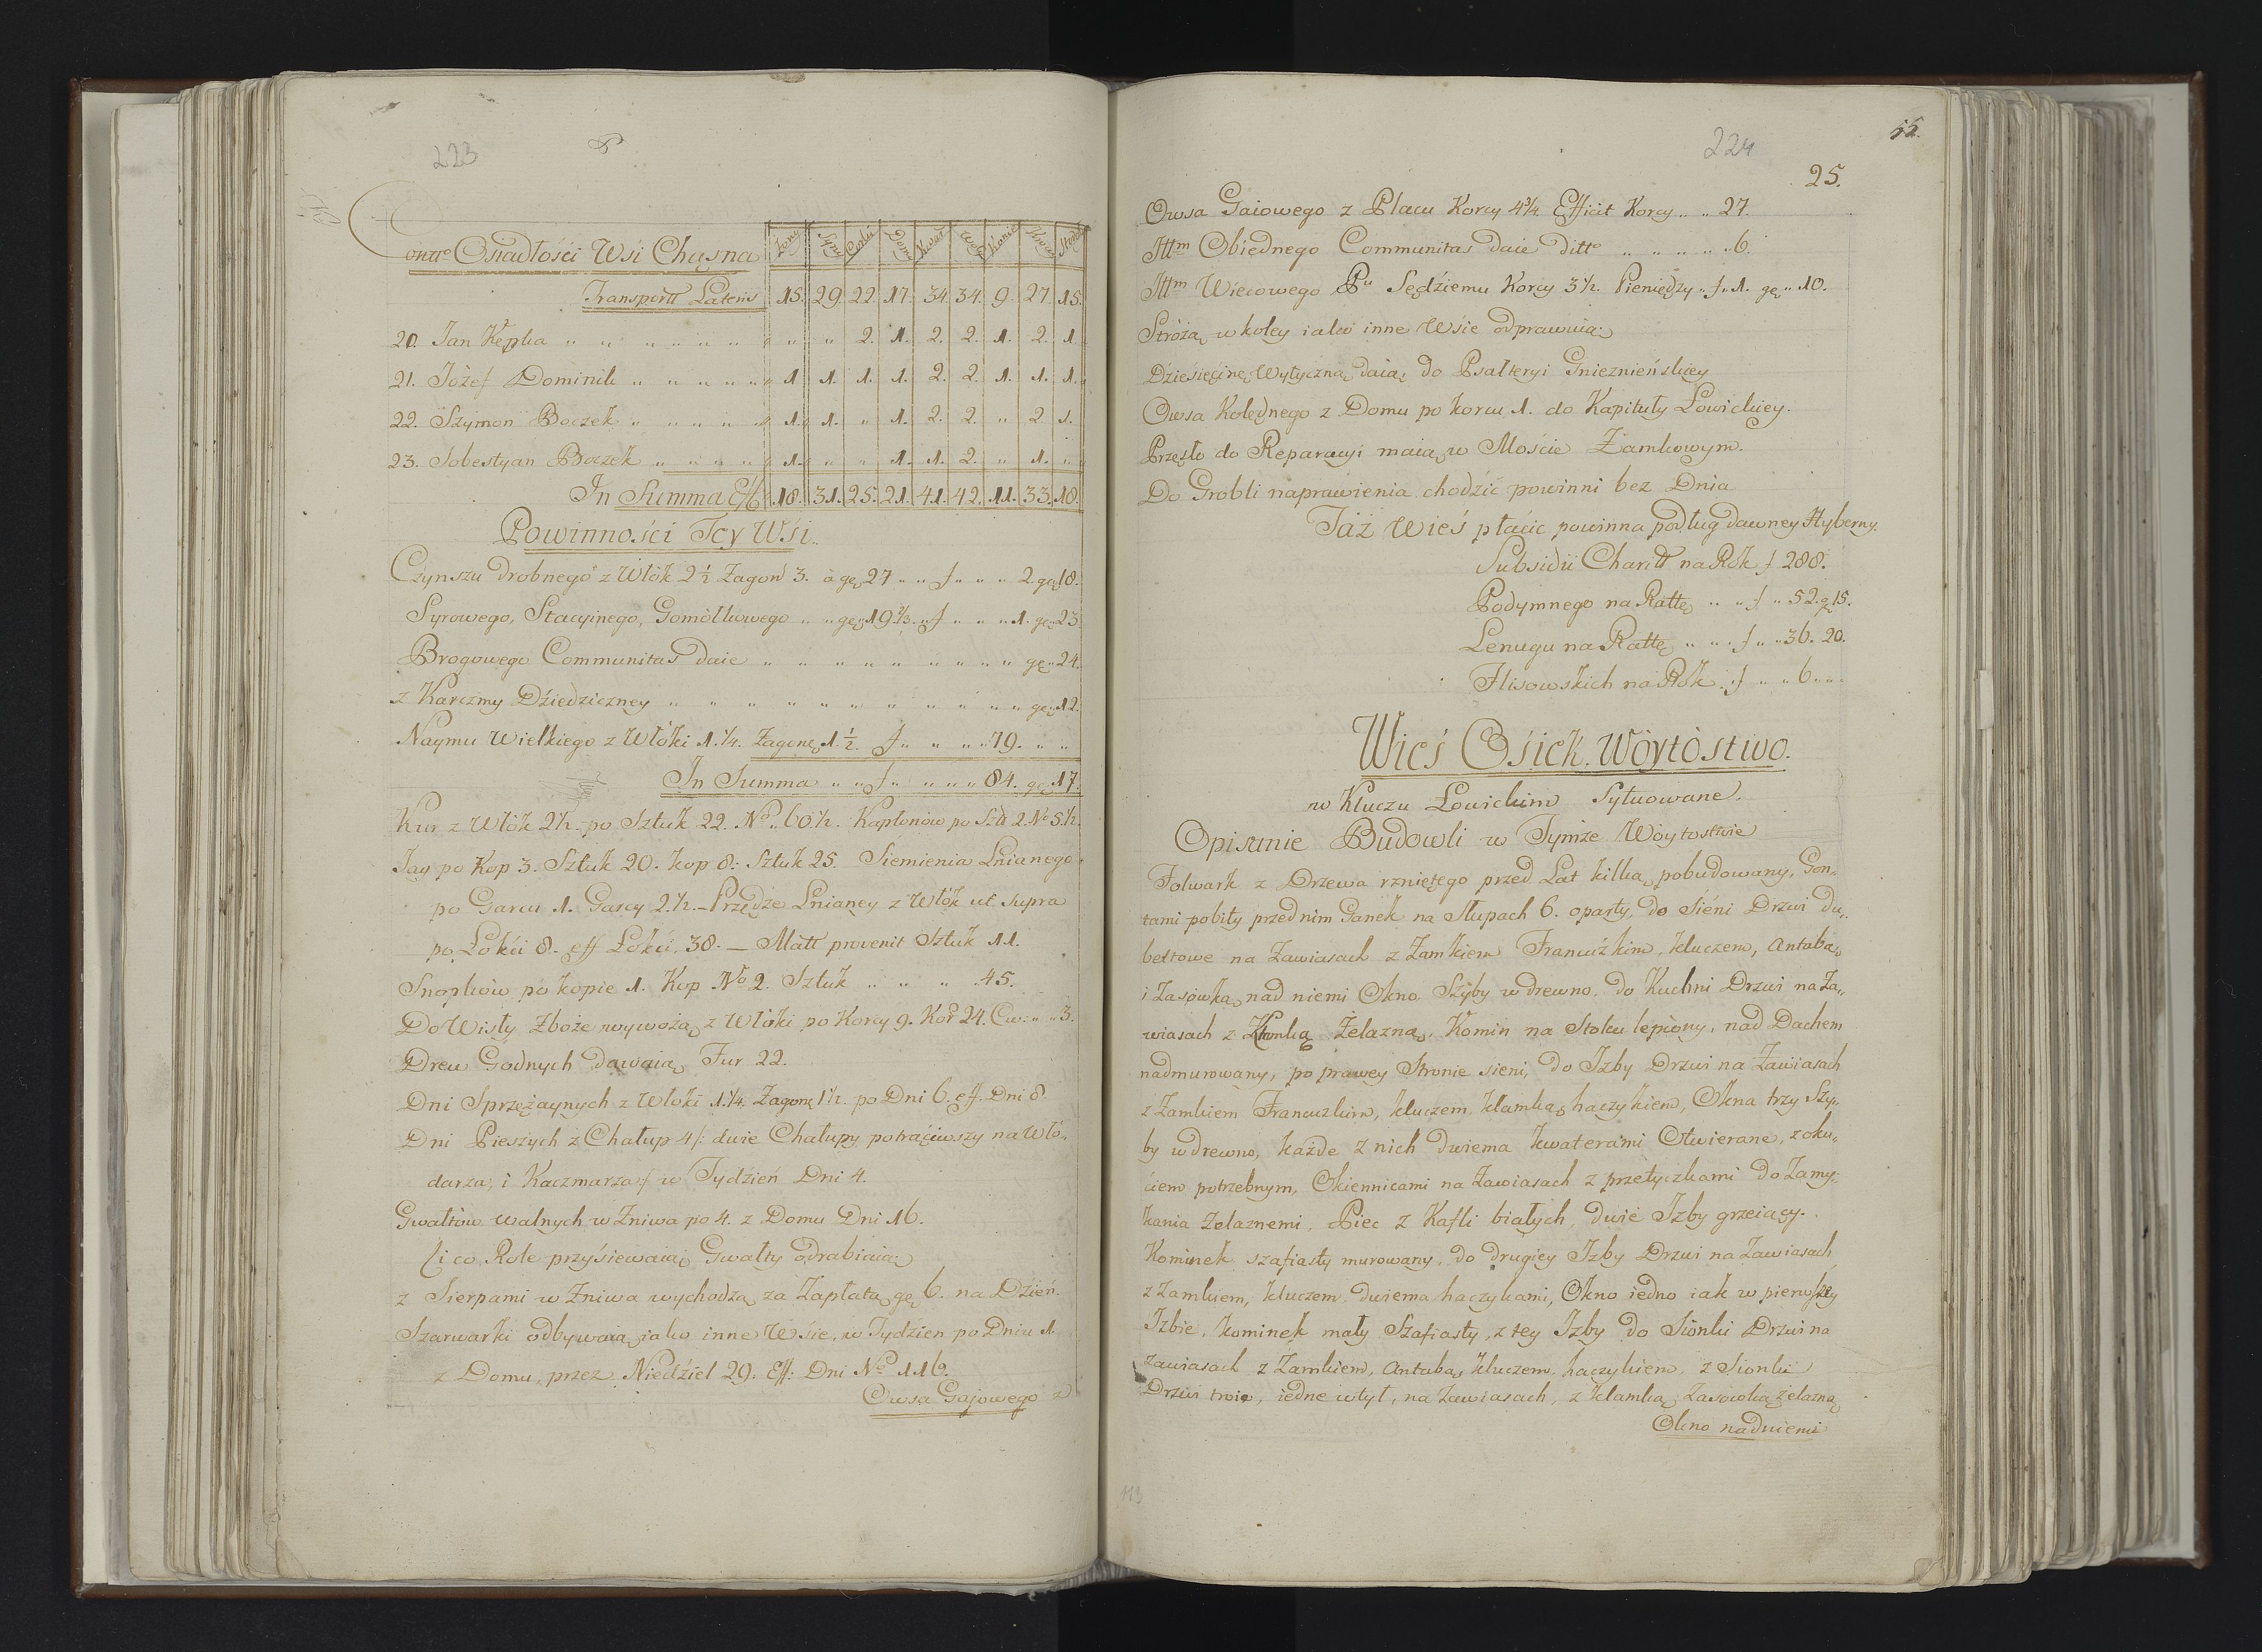 223
ontt⁰ Osiadłości Wśi Chąsna Żony Syny Corki Dom Konie Woły Krow
Transportt Lateris 15. 29. 22. 17. 34. 34. 9. 27. 15.
20. Jan Kępka „ „ „ „ „ „ „ „ „ 2. 1. 2. 2. 1. 2. 1.
21. Jôzef Dominik „ „ „ „ „ „ 1 1. 1. 1. 2. 2. 1. 1. 1.
22. Szymon Boczek „ „ „ „ „ 1. 1. „ 1. 2. 2. „ 2. 1.
23. Sobestyan Boczek „ „ „ „ „ 1. „ „ 1. 1. 2. „ 1. „
In Summa 18. 31. 25. 21. 41. 42. 11. 33. 18.
Powinnośći Tey Wśi.
Czynszu drobnego z Włók 2½ Zagon 3. à gę 27 „ „ f „ „ „ 2. gę 18.
Syrowego, Stacyinego, Gomółkowego „ „ gę 19⅔ „ f „ „ „ 1. gę 23.
Brogowego Communitas daie „ „ „ „ „ „ „ „ „ gę „ 24.
z Karczmy Dźiedziczney „ „ „ „ „ „ „ „ „ „ gę 12.
Naymu Wielkiego z Włóki 1.¼. Zagonę 1½. f „ „ „ „ 79. „ „
In Summa „ „ f „ „ „ „ 84. gę 17.
Kur z Włók 2½. po Sztuk 22. N⁰ „ 60½. Kapłonów po Szt 2. N⁰ 5½.
Jay po Kop 3. Sztuk 20. kop 8: Sztuk 25. Siemienia Lnianego
po Garcu 1. Garcy 2.½. – Przędze Lnianey z Włók ut supra
po Łokći 8. eff Łokći, 38. — Matt provenit Sztuk 11.
Snopków po kopie 1. Kop N⁰ 2. Sztuk „ „ „ 45.
Do Wisły Zboże wywożą z Włóki po Korcy 9. Kor 24. Cw: „ „ 3.
Drew Godnych dawaią Fur 22.
Dni Sprzężaynych z Włoki 1.¼. Zagonę 1½. po Dni 6. eff. Dni 8
Dni Pieszych z Chałup 4 /: dwie Chałupy potrąćiwszy na Wło„
darza, i Kaczmarza :/ w Tydźień Dni 4.
Gwałtów walnych w Żniwa po 4. z Domu Dni 16.
Ci co Role przyśiewaią, Gwałty odrabiaią.
z Sierpami w Żniwa wychodzą za Zapłatą gę 6. na Dźień.
Szarwarki odbywaią iako inne Wsie, w Tydzien po Dniu 1
z Domu, przez Niedźiel 29. Eff: Dni N⁰ 116.
Owsa Gajowego z
224
25.
Owsa Gaiowego z Placu Korcy 4¾ Efficit Korcy „ „ 27.
Ittm Obiednego Communitas daie ditt⁰ „ „ „ „ „ 6.
Ittm Wiecowego Pu Sędziemu Korcy 3½. Pieniędzy „ f „ 1. gę „ 10.
Stróżą w koley iako inne Wśie odprawuią.
Dźiesięćinę Wytyczną daią do Psałteryi Gniezninśkiey
Owsa Kolędnego z Domu po korcu 1. do Kapituły Łowickiey.
Przęsło do Reparacyi maią w Mośćie Zamkowym.
Do Grobli naprawienia chodźić powinni bez Dnia
Táż Wieś płaćić powinna podług dawney Hyberny.
Subsidii Charitt na Rok f 288.
Podymnego na Rattę „ „ f „ 52. g 15.
Lenugu na Rattę „ „ f „ „ 36. 20.
Flisowskich na Rok f „ „ 6 „ „
Wieś Ośiek. Wòytòstwo.
w Kluczu Łowickim Sytuowane.
Opisanie Budowli w Tymże Wòytostwie
Folwark z Drzewa rzniętego przed Lat kilką pobudowany, Gon„
tami pobity przed nim Ganek na Słupach 6. oparty, do Siéni Drzwi du„
beltowe na Zawiasach z Zamkiem Francuzkim, kluczem, Antabą,
i Zasówką, nad niemi Okno, Szyby w drewno. do Kuchni Drzwi na Za„
wiasach z Klamką Żelazną, Komin na Stolcu lepiony, nad Dachem
nadmurowany, po prawey Stronie sieni, do Izby Drzwi na Zawiasach
z Zamkiem Francuzkim, kluczem, klamką, haczykiem, Okna trzy Szy„
by w drewno, każde z nich dwiema kwaterami Otwierane, z oku„
ćiem potrzebnym, Okiennicami na Zawiasach z przetyczkami do Zamy„
kania Żelaznemi, Piec z Kafli białych, dwie Izby grzeiący.
Kominek szafiasty murowany, do drugiey Izby Drzwi na Zawiasach
z Zamkiem, kluczem, dwiema haczykami, Okno iedno iak w pierwszey
Izbie, kominek mały Szafiasty, z tey Izby do Sionki Drzwi na
zawiasach z Zamkiem, Antabą, kluczem, haczykiem, z Sionki
Drzwi troie, iedne wtył, na Zawiasach, z klamką, Zasowką żelazną,
Okno nad niemi
113